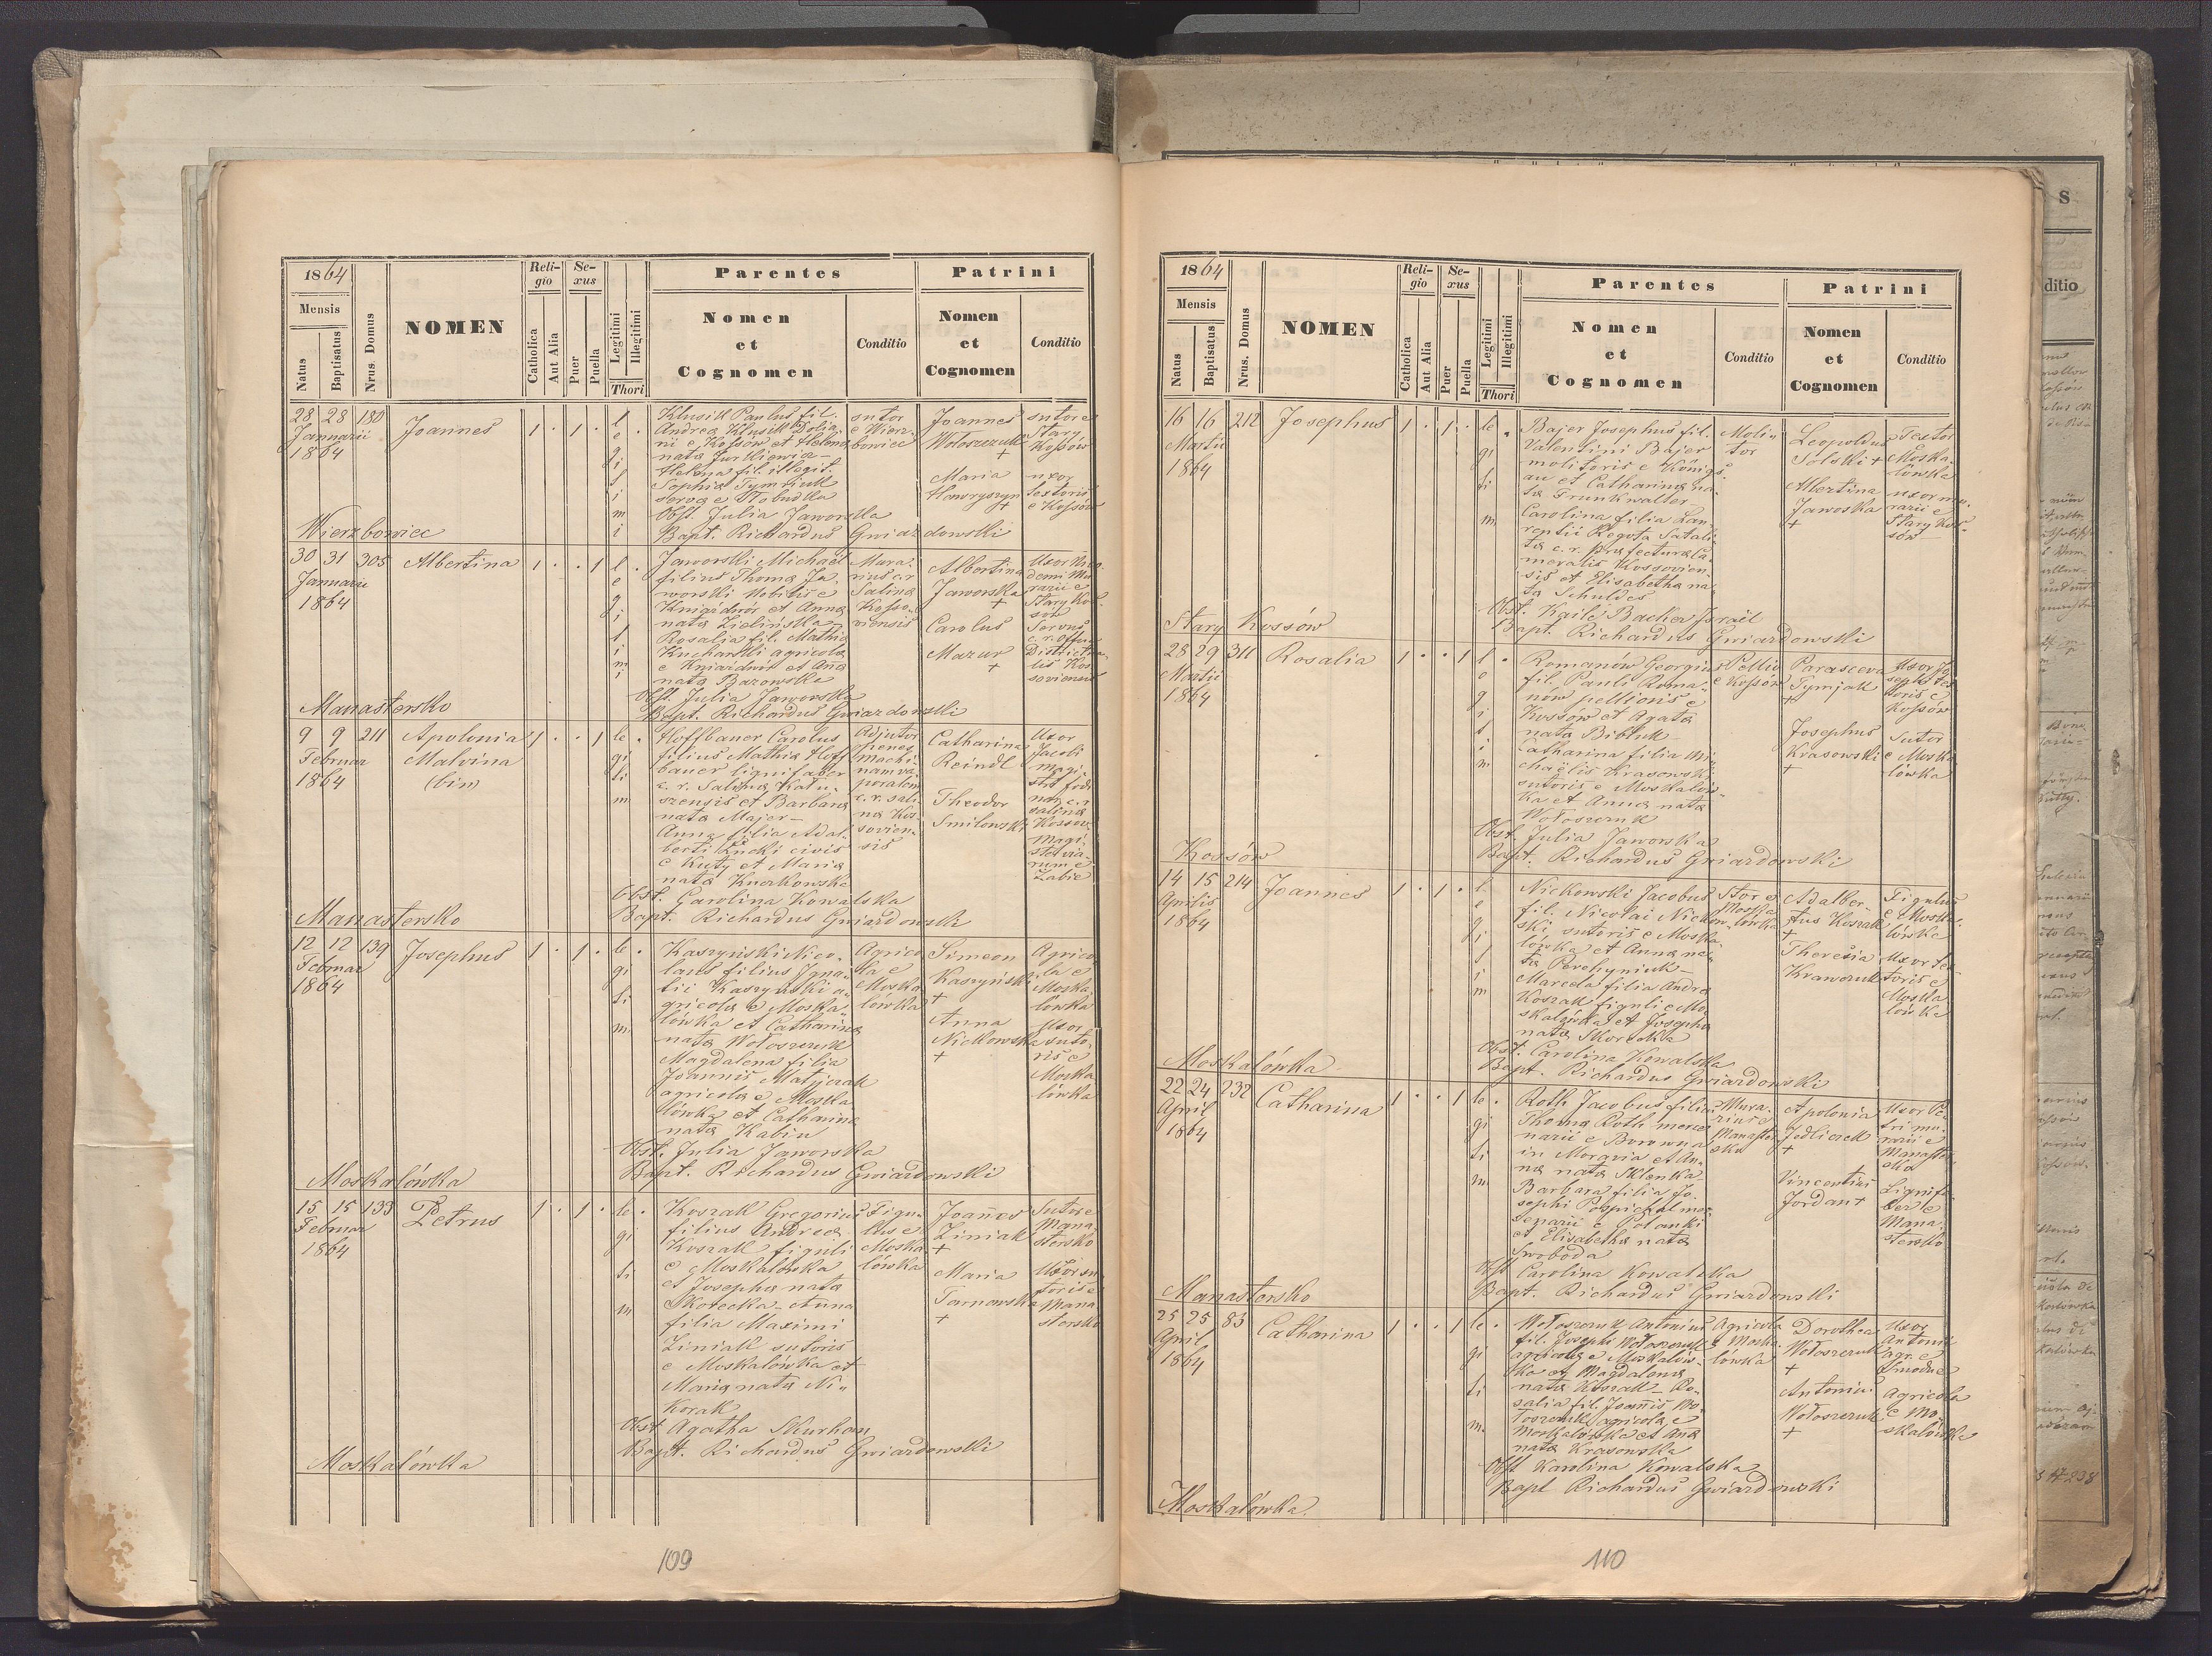 1864
Mensis
Natus
Baptisatus
Nrus. Domus
NOMEN
Reli-
gio
Catholica
Aut Alia
Se-
xus
Puer
Puella
Legitimi
Illegitimi
Thori
Parentes
Nomen
et
Cognomen
Conditio
Patrini
Nomen
et
Cognomen
Conditio
28 28 180
Januarii
1864
Joannes
1 . 1 .
legitimi
Klusik Paulus fil.
Andreæ Klusik
nii e Kossów et Helena
nata Jurkiewicz –
Helena fil. illegit.
Sophiæ Tymbiuk
servæ e Słobudka
Obst. Julia Jaworska
Bapt. Richardus Gwiazdowski
sutor
e Wierz-
bowiec
Joannes
Wołoszczuk
+
Maria
Hawryszyn
sutor e
Stary
Kossów
uxor
textoris
e Kossów
Wierzbowiec
30 31 305
Januarii
1864
Albertina
1 . . 1
legitimi
Jaworski Michaël
filius Thomæ Ja-
worski nobilis e
Kniaźdwór et Anna
nata Zielińska –
Rosalia fil. Mathiæ
Kucharski agricolæ
e Kniaźdwór et Anna
nata Barowska
Obst. Julia Jaworska
Bapt. Richardus Gwiazdowski
Mura-
rius c.r.
Salinæ
Kosso-
viensis
Albertina
Jaworska
+
Carolus
Mazur
+
Uxor Nico-
demi Mu-
rarii e
Stary Kos-
sów
Servus
c. r. offici
Districtua-
lis Kos-
soviensis
Manastersko
9 9 211
Februar
1864
Apolonia
Malvina
(bin)
1 . . 1
legitim
Hoffbauer Carolus
filius Mathiæ Hoff
bauer lignifaber
c. r. Salinæ Katu-
szensis et Barbara
nata Majer –
Anna filia Adal-
berti Kucki civis
e Kuty et Maria
nata Kuczkowska
Obst. Carolina Kowalska
Bapt. Richardus Gwiazdowski
Adjutor
penes
machi-
nam va-
poralem
c. r. sali-
na Kos-
sovien-
sis
Catharina
Reindl
Theodor
Smilowski
Uxor
Jacobi
magi-
stri fodi
nar c.r.
salinæ
Kossov.
Magi-
ster via-
rum e
Zabie
Manastersko
12 12 139
Februar
1864
Josephus
1 . 1 .
legitim
Kaszyński Nico-
laus filius Igna-
tii Kaszyński a-
gricolæ e Moska-
lówka et Catharina
nata Wołoszczuk
Magdalena filia
Joannis Matijczak
agricolæ e Moska
lówka et Catharina
nata Kabin
Obst. Julia Jaworska
Bapt. Richardus Gwiazdowski
Agrico
la e
Moska
lówka
Simeon
Kaszyński
+
Anna
Nickowska
+
Agrico
la e
Moska
lówka
Uxor
suto-
ris e
Moska
lówka
Moskalówka
15 15 133
Februar
1864
Petrus
1 . 1 .
legitim
Koszak Gregorius
filius Andreæ
Koszak figuli
e Moskalówka
et Josepha nata
Skotecka – Anna
filia Maximi
Ziniak sutoris
e Moskalówka et
Maria nata Ni-
Korak
Obst. Agatha Skurhan
Bapt. Richardus Gwiazdowski
Figu-
lus e
Moska
lówka
Joannes
Ziniak
+
Maria
Tarnowska
+
Sutor e
Mana-
stersko
Uxor su
toris e
Mana
stersko
Moskalówka
109
1864
Mensis
Natus
Baptisatus
Nrus. Domus
NOMEN
Reli-
gio
Catholica
Aut Alia
Se-
xus
Puer
Puella
Legitimi
Illegitimi
Thori
Parentes
Nomen
et
Cognomen
Conditio
Patrini
Nomen
et
Cognomen
Conditio
16 16 212
Martii
1864
Josephus
1 . 1 .
legitim
Bajer Josephus fil.
Valentini Bajer
molitoris e Königs
au et Catharina na-
ta Trunkwalter
Carolina filia Lau
rentii Regosa Satali-
tæ c. r. Præfectura Ca
meralis Kossovien
sis et Elisabetha na-
ta Schuldes
Obst. Kaile Bacher Israël
Bapt. Richardus Gwiazdowski
Moli-
tor
Leopoldus
Solski +
Albertina
Jawoska
+
Textor
e Moska
lówka
uxor mu
rarii e
Stary Kos-
sów
Stary Kossów
28 29 311
Martii
1864
Rosalia
1 . . 1
legitim
Romanów Georgius
fil. Pauli Roma-
nów pellionis e
Kossów et Agata
nata Bibluk
Catharina filia Mi-
chaëlis Krasowski
sutoris e Moskalów-
ka et Anna nata
Wołoszczuk
Obst. Julia Jaworska
Bapt. Richardus Gwiazdowski
Pellio
e Kossów
Parasceva
Tymjak
+
Josephus
Krasowski
+
Uxor Jo
sephi tex
toris e
Kossów
Sutor
e Moska
lówka
Kossów
14 15 214
Aprilis
1864
Joannes
1 . 1 .
legitim
Nickowski Jacobus
fil. Nicolai Nickow-
ski sutoris e Moska-
lówka et Anna na-
ta Perehyniuk –
Marcela filia Andreæ
Koszak figuli e Mo-
skalówka et Josepha
nata Skorecka
Obst. Carolina Kowalska
Bapt. Richardus Gwiazdowski
Stor e
Moska
lówka
Adalber-
tus Koszak
+
Theresia
Krawczuk
Figulus
e Moska-
lówka
Uxor tex
toris e
Moska
lówka
Moskalówka
22 24 232
April
1864
Catharina
1 . . 1
legitim
Roth Jacobus filius
Thomæ Roth merce
narii e Borowna
in Moravia et An-
na nata Sklenka
Barbara filia Jo-
sephi Pospichal mer
cenarii e Potanki
et Elisabetha nata
Swoboda
Obst. Carolina Kowalska
Bapt. Richardus Gwiazdowski
Mura-
rius e
Manaster
sko
Apolonia
Jedliczek
+
Vincentius
Jordan +
Uxor Pe-
tri mu-
rarii e
Manaster
sko
Lignifa
ber e
Mana-
stersko
Manastersko
25 25 83
April
1864
Catharina
1 . . 1
legitim
Wołoszczuk Antonius
fil. Josephi Wołoszczuk
agricolæ e Moskalów-
ka et Magdalena
nata Koszak – Ro-
salia fil. Joannis Wo-
łoszczuk agricolæ e
Moskalówka et Anna
nata Krasowska
Obst Karolina Kowalska
Bapt Richardus Gwiazdowski
Agricola
e Moska
lówka
Dorothea
Wołoszczuk
+
Antonius
Wołoszczuk
+
Uxor
Antonii
agr. e
Smodne
Agricola
e Mo
skalówka
Moskalówka
110
S
ditio